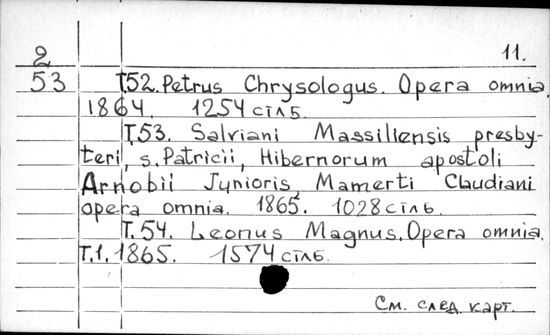 2 11.
53 Т.52. Petrus Chrysologus. Opera omnia.
1864. 1254 стлб.
Т.53. Salviani Massiliensis presby-
teri, s. Patricii, Hibernorum apostoli
Arnobii Junioris, Mamerti Claudiani
opera omnia. 1865. 1028 стлб.
Т.54. Leonus Magnus. Opera omnia.
Т.1. 1865. 1574 стлб.
См. след. карт.